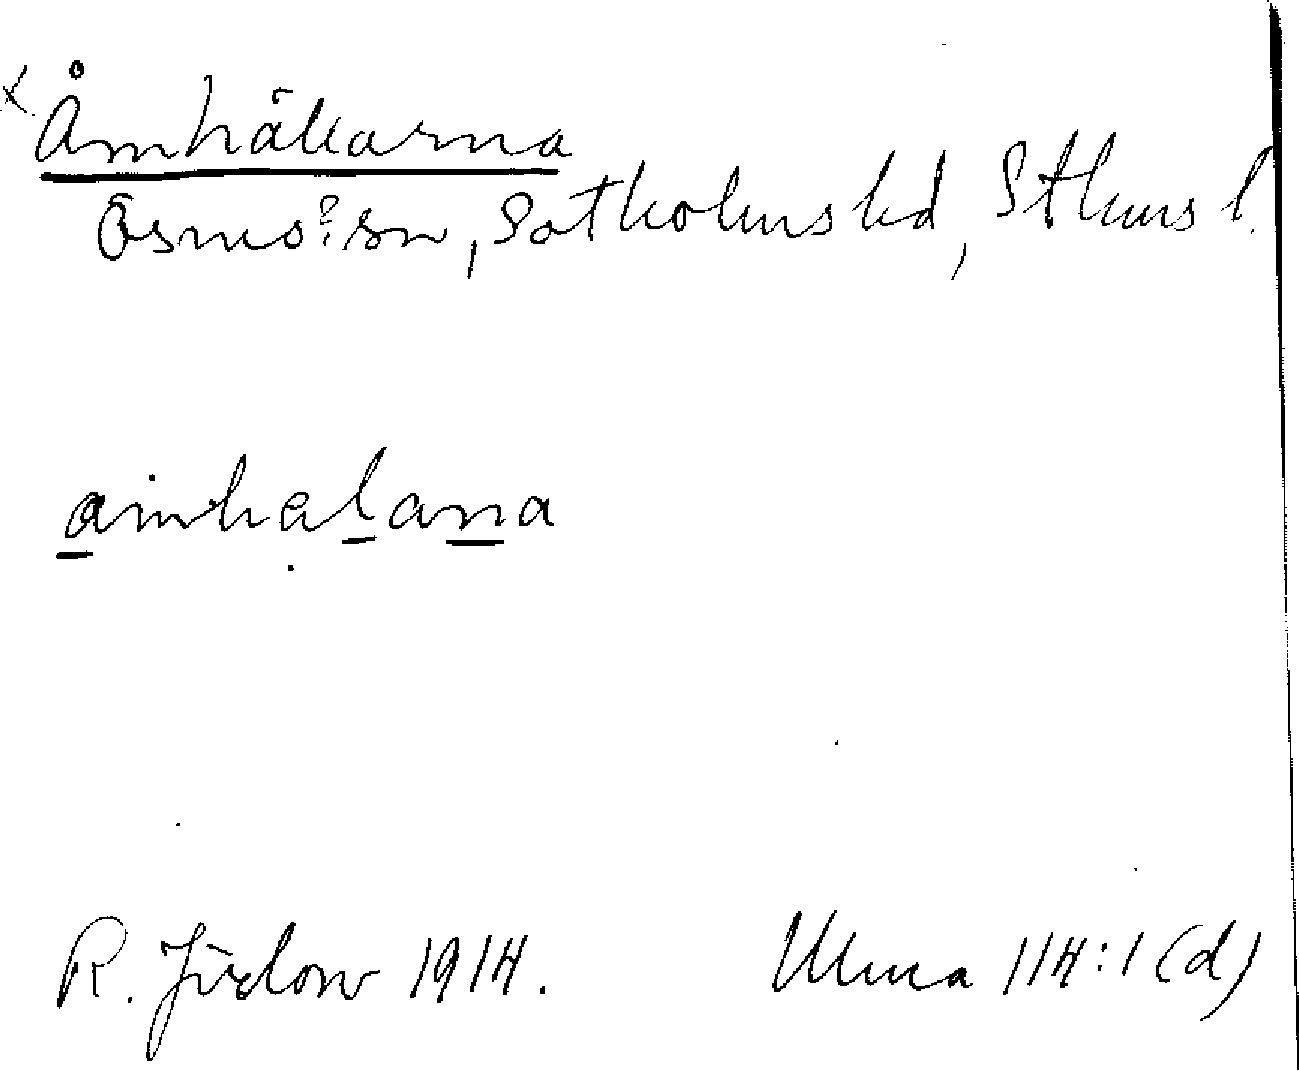 x Åmhällarna
Ösmo? sn, Sotholms hd, Sthms l.
ȧmhạlana
R. Jirlow 1914.
Ulma 114:1 (d)